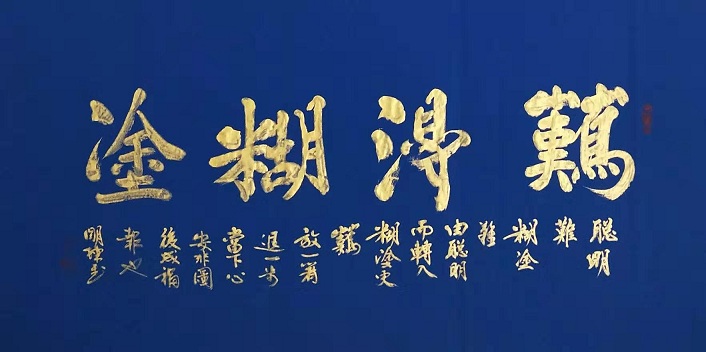 難得糊塗
聰明
難
糊塗
難
由聰明
而轉入
糊塗更
難
放一著
退一步
當下心
安非圖
後來福
報也